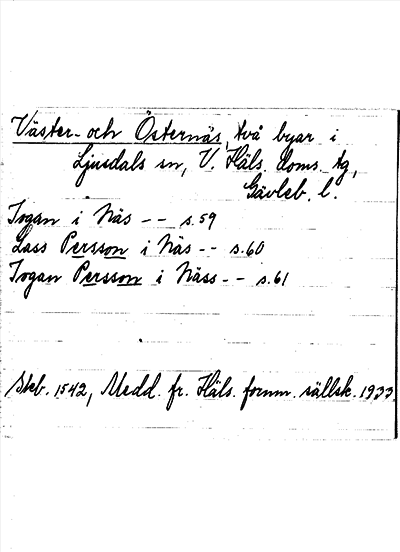 Väster- och Östernäs, två byar i
Ljusdals sn, V. Häls. doms. tg,
Gävleb. l.
Ingan i Näs -- s.59
Lass Persson i Näs -- s.60
Ingan Persson i Näss -- s.61
Skb. 1542, Medd. fr. Häls. fornm. sällsk. 1933